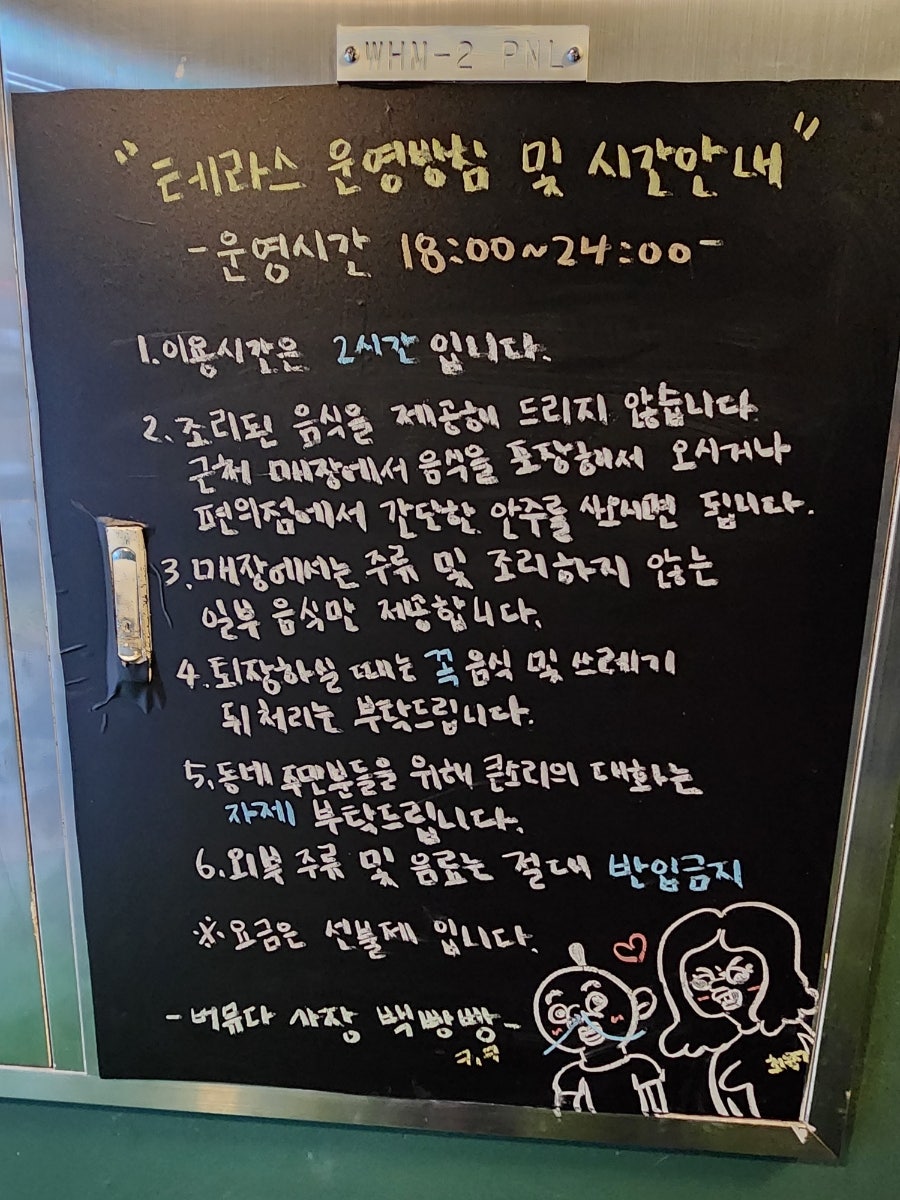 WHM-2 PNL
"테라스 운영방침 및 시간안내"
-운영시간 18:00~24:00-
1.이용시간은 2시간 입니다.
2.조리된 음식을 제공해 드리지 않습니다
근처 매장에서 음식을 포장해서 오시거나
편의점에서 간단한 안주를 사오시면 됩니다.
3.매장에서는 주류 및 조리하지 않는
일부 음식만 제공합니다.
4.퇴장하실 때는 꼭 음식 및 쓰레기
뒤처리는 부탁드립니다.
5.동네 주민분들을 위해 큰소리의 대화는
자제 부탁드립니다.
6.외부 주류 및 음료는 절대 반입금지
※요금은 선불제 입니다.
-버뮤다 사장 백빵빵-